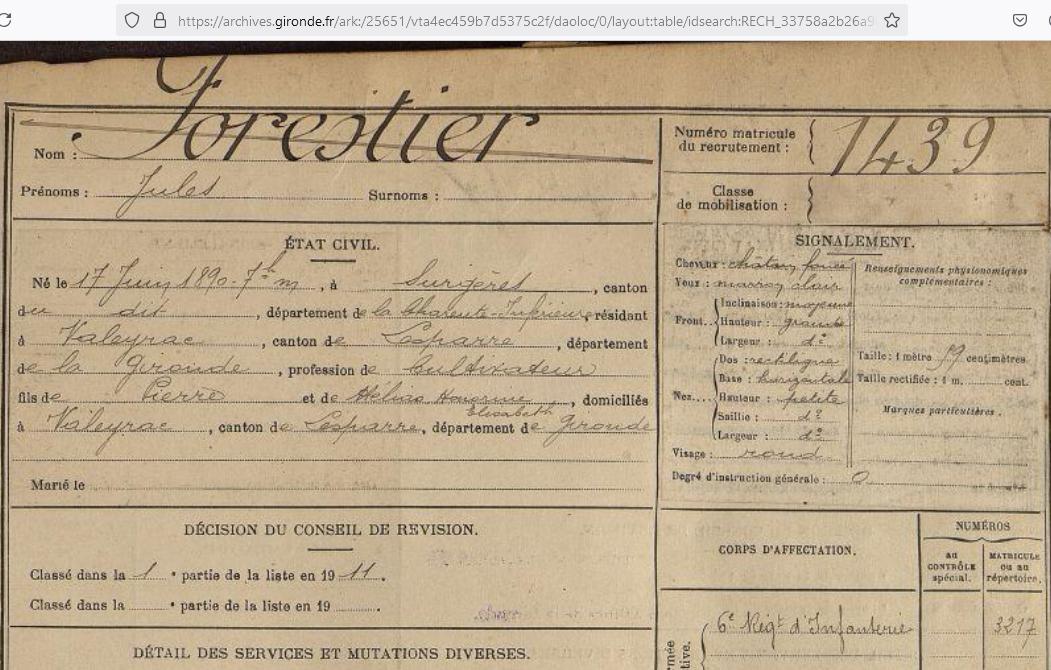 https://archives.gironde.fr/ark:/25651/vta4ec459b7d5375c2f/daoloc/0/layout:table/idsearch:RECH_33758a2b26a9
Nom : Forestier
Prénoms : Jules Surnoms :
Numéro matricule du recrutement : 1439
Classe de mobilisation :
ÉTAT CIVIL.
Né le 17 Juin 1890 , à Surgères , canton
du dit , département de la Charente-Inférieure, résidant
à Valeyrac , canton de Lesparre , département
de la Gironde , profession de Cultivateur
fils de Pierre et de Honorine Elisabeth , domiciliés
à Valeyrac , canton de Lesparre, département de Gironde
Marié le
DÉCISION DU CONSEIL DE REVISION.
Classé dans la 1 e partie de la liste en 1911.
Classé dans la e partie de la liste en 19 .
DÉTAIL DES SERVICES ET MUTATIONS DIVERSES.
SIGNALEMENT.
Cheveux : châtain foncé
Yeux : marron clair
Front.. Inclinaison : moyenne
Hauteur : grande
Largeur : do
Nez.... Dos : rectiligne
Base : horizontale
Hauteur : petite
Saillie : do
Largeur : do
Visage : rond
Renseignements physionomiques complémentaires :
Taille : 1 mètre 59 centimètres
Taille rectifiée : 1 m. cent.
Marques particulières.
Degré d'instruction générale : 0
CORPS D'AFFECTATION.
NUMÉROS
au CONTRÔLE spécial.
MATRICULE ou au répertoire.
6e Régt d'Infanterie 3217